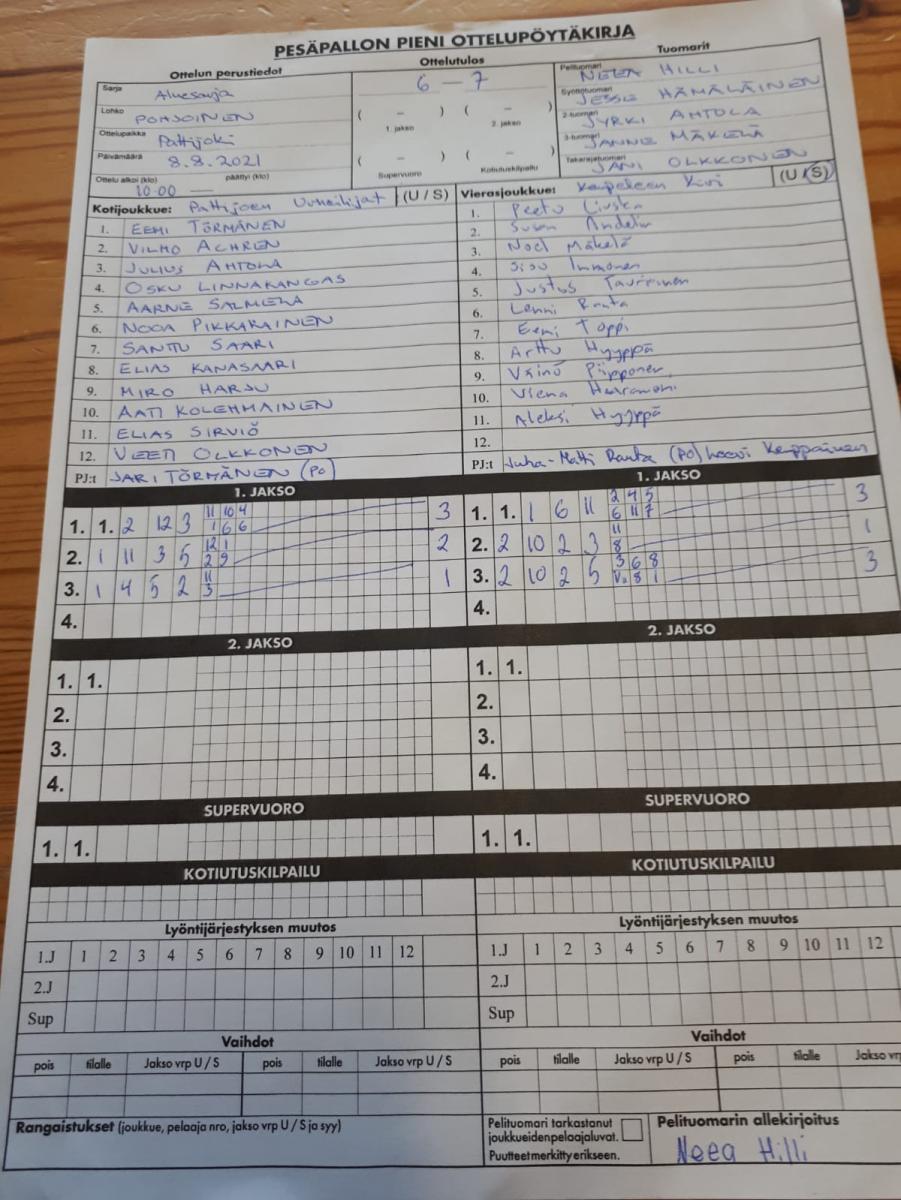 PESÄPALLON PIENI OTTELUPÖYTÄKIRJA
Ottelun perustiedot
Ottelutulos
Tuomarit
Sarja Aluesarja
6 - 7
Pelituomari NEEA HILLI
Lohko POHJOINEN
( - ) ( - )
Syöttötuomari JESSE HÄMÄLÄINEN
1. jakso 2. jakso
2-tuomari JYRKI AHTOLA
Ottelupaikka Pattijoki
3-tuomari JANNE MÄKELÄ
Päivämäärä 8.8.2021
( - ) ( - )
Takarajatuomari JANI OLKKONEN
Supervuoro Kotiutuskilpailu
Ottelu alkoi (klo) 10.00 päättyi (klo) —
Kotijoukkue: Pattijoen Urheilijat (U / S)
1. EEMI TÖRMÄNEN
2. VILHO ACHREN
3. JULIUS AHTOLA
4. OSKU LINNAKANGAS
5. AARNE SALMELA
6. NOOA PIKKARAINEN
7. SANTU SAARI
8. ELIAS KANASAARI
9. MIRO HARJU
10. AATI KOLEHMAINEN
11. ELIAS SIRVIÖ
12. VEETI OLKKONEN
PJ:t JARI TÖRMÄNEN (PO)
Vierasjoukkue: Kempeleen Kiri (U / S)
1. Peetu
2. Andelin
3. Noel Mäkelä
4. Sisu Immonen
5. Justus
6. Lenni Rauta
7. Eemi Toppi
8. Arttu Hyyppä
9. Väinö Piipponen
10. Viena
11. Aleksi Hyyppä
12.
PJ:t Juha-Matti Rauta (PO) Kemppainen
1. JAKSO
1. 1. 2 12 3 11 10 4 3
1 6 6
2. 1 11 3 5 12 1 2
2 9
3. 1 4 5 2 11 1
3
4.
1. JAKSO
1. 1. 1 6 11 2 4 5 3
6 11 7
2. 2 10 2 3 11 1
8
3. 2 10 2 5 3 6 8 3
V. 8 1
4.
2. JAKSO
1. 1.
2.
3.
4.
2. JAKSO
1. 1.
2.
3.
4.
SUPERVUORO
1. 1.
SUPERVUORO
1. 1.
KOTIUTUSKILPAILU
KOTIUTUSKILPAILU
Lyöntijärjestyksen muutos
1.J 1 2 3 4 5 6 7 8 9 10 11 12
2.J
Sup
Lyöntijärjestyksen muutos
1.J 1 2 3 4 5 6 7 8 9 10 11 12
2.J
Sup
Vaihdot
pois tilalle Jakso vrp U / S pois tilalle Jakso vrp U / S
Vaihdot
pois tilalle Jakso vrp U / S pois tilalle Jakso vrp
Rangaistukset (joukkue, pelaaja nro, jakso vrp U / S ja syy)
Pelituomari tarkastanut
joukkueidenpelaajaluvat.
Puutteet merkitty erikseen.
Pelituomarin allekirjoitus
Neea Hilli